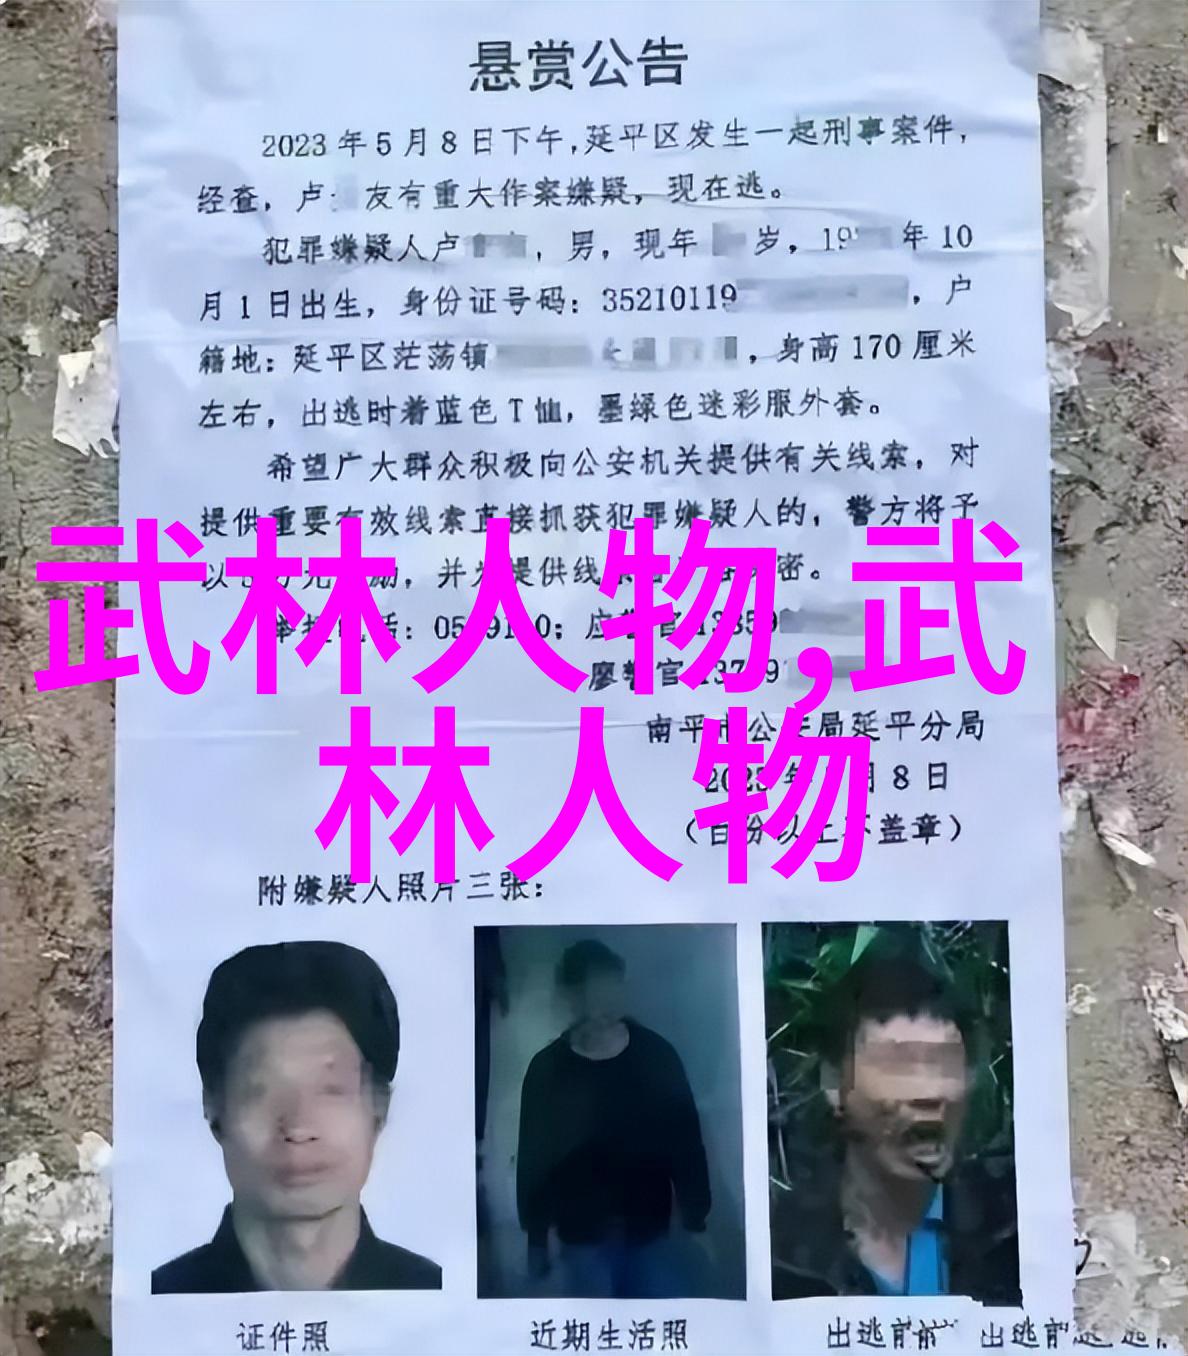 悬赏公告
2023年5月8日下午,延平区发生一起刑事案件,
经查,卢 友有重大作案嫌疑,现在逃。
犯罪嫌疑人卢 ,男,现年 岁,19 年10
月1日出生,身份证号码:35210119 ,户
籍地:延平区茫荡镇 ,身高170厘米
左右,出逃时着蓝色T恤,墨绿色迷彩服外套。
希望广大群众积极向公安机关提供有关线索,对
提供重要有效线索直接抓获犯罪嫌疑人的,警方将予
以 励,并为提供线 密。
武林人物,武
林人物
举报电话:05 9110;应警官13859
廖警官1379
南平市公安局延平分局
2023年 月8日
(百份以上不盖章)
附嫌疑人照片三张:
证件照
近期生活照
出逃前 出逃前